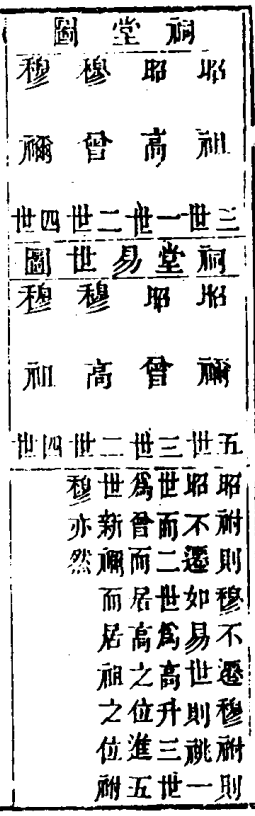 祠堂圖
昭 昭 穆 穆
祖 高 曾 禰
三世 一世 二世 四世
祠堂易世圖
昭 昭 穆 穆
禰 曾 高 祖
五世 三世 二世 四世
昭祔則穆不遷穆祔則
昭不遷如易世則祧一
世而二世爲高升三世
爲曾而居高之位進五
世新禰而居祖之位祔
穆亦然